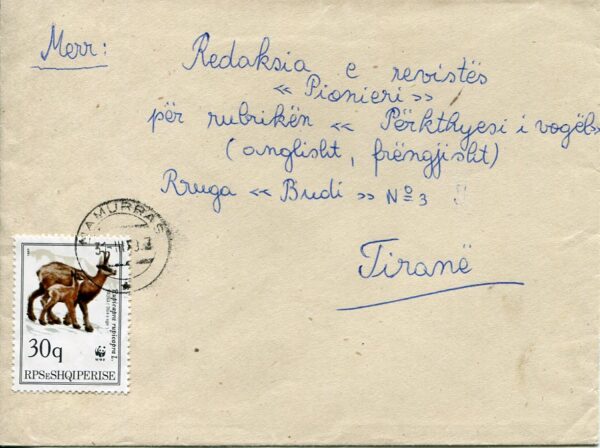 Merr:
Redaksia e revistës
« Pionieri »
për rubrikën « Përkthyesi i vogël»
( anglisht, frëngjisht)
Rruga « Budi » Nº 3
Tiranë
MAMURRAS
Rupicapra rupicapra L.
WWF
30q
RPS E SHQIPERISE